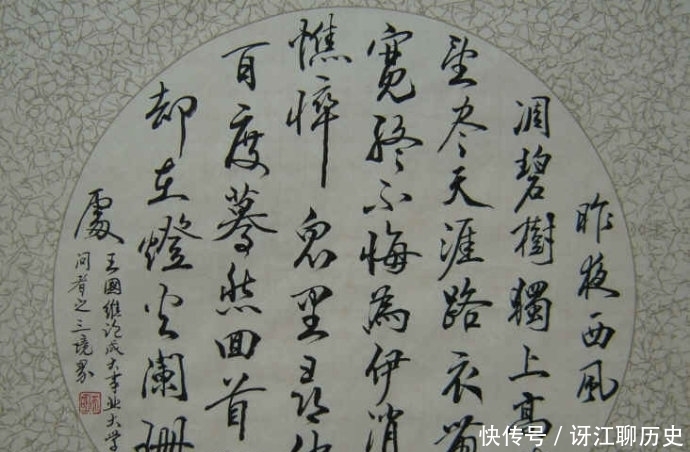 昨夜西風
凋碧樹獨上高
望尽天涯路衣
寬終不悔為伊消
憔悴眾里尋他
百度驀然回首
却在燈火闌珊
處
王國維论成大事业大学
問者之三境界
快传号 / 讶江聊历史